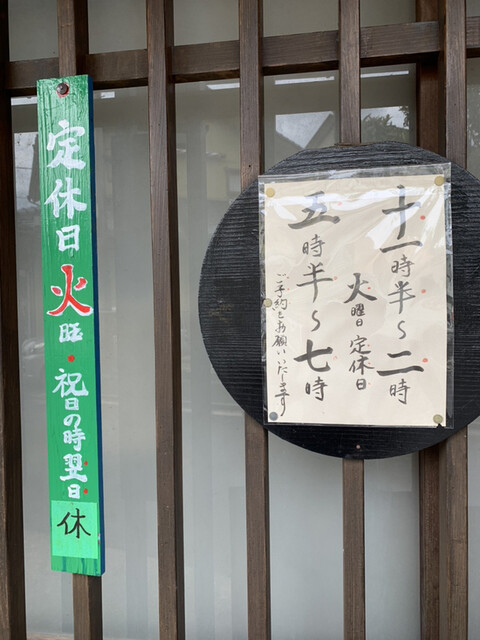 十一時半~二時
火曜日 定休日
五時半~七時
ご予約をお願いいたします
定休日火曜・祝日の時翌日
休